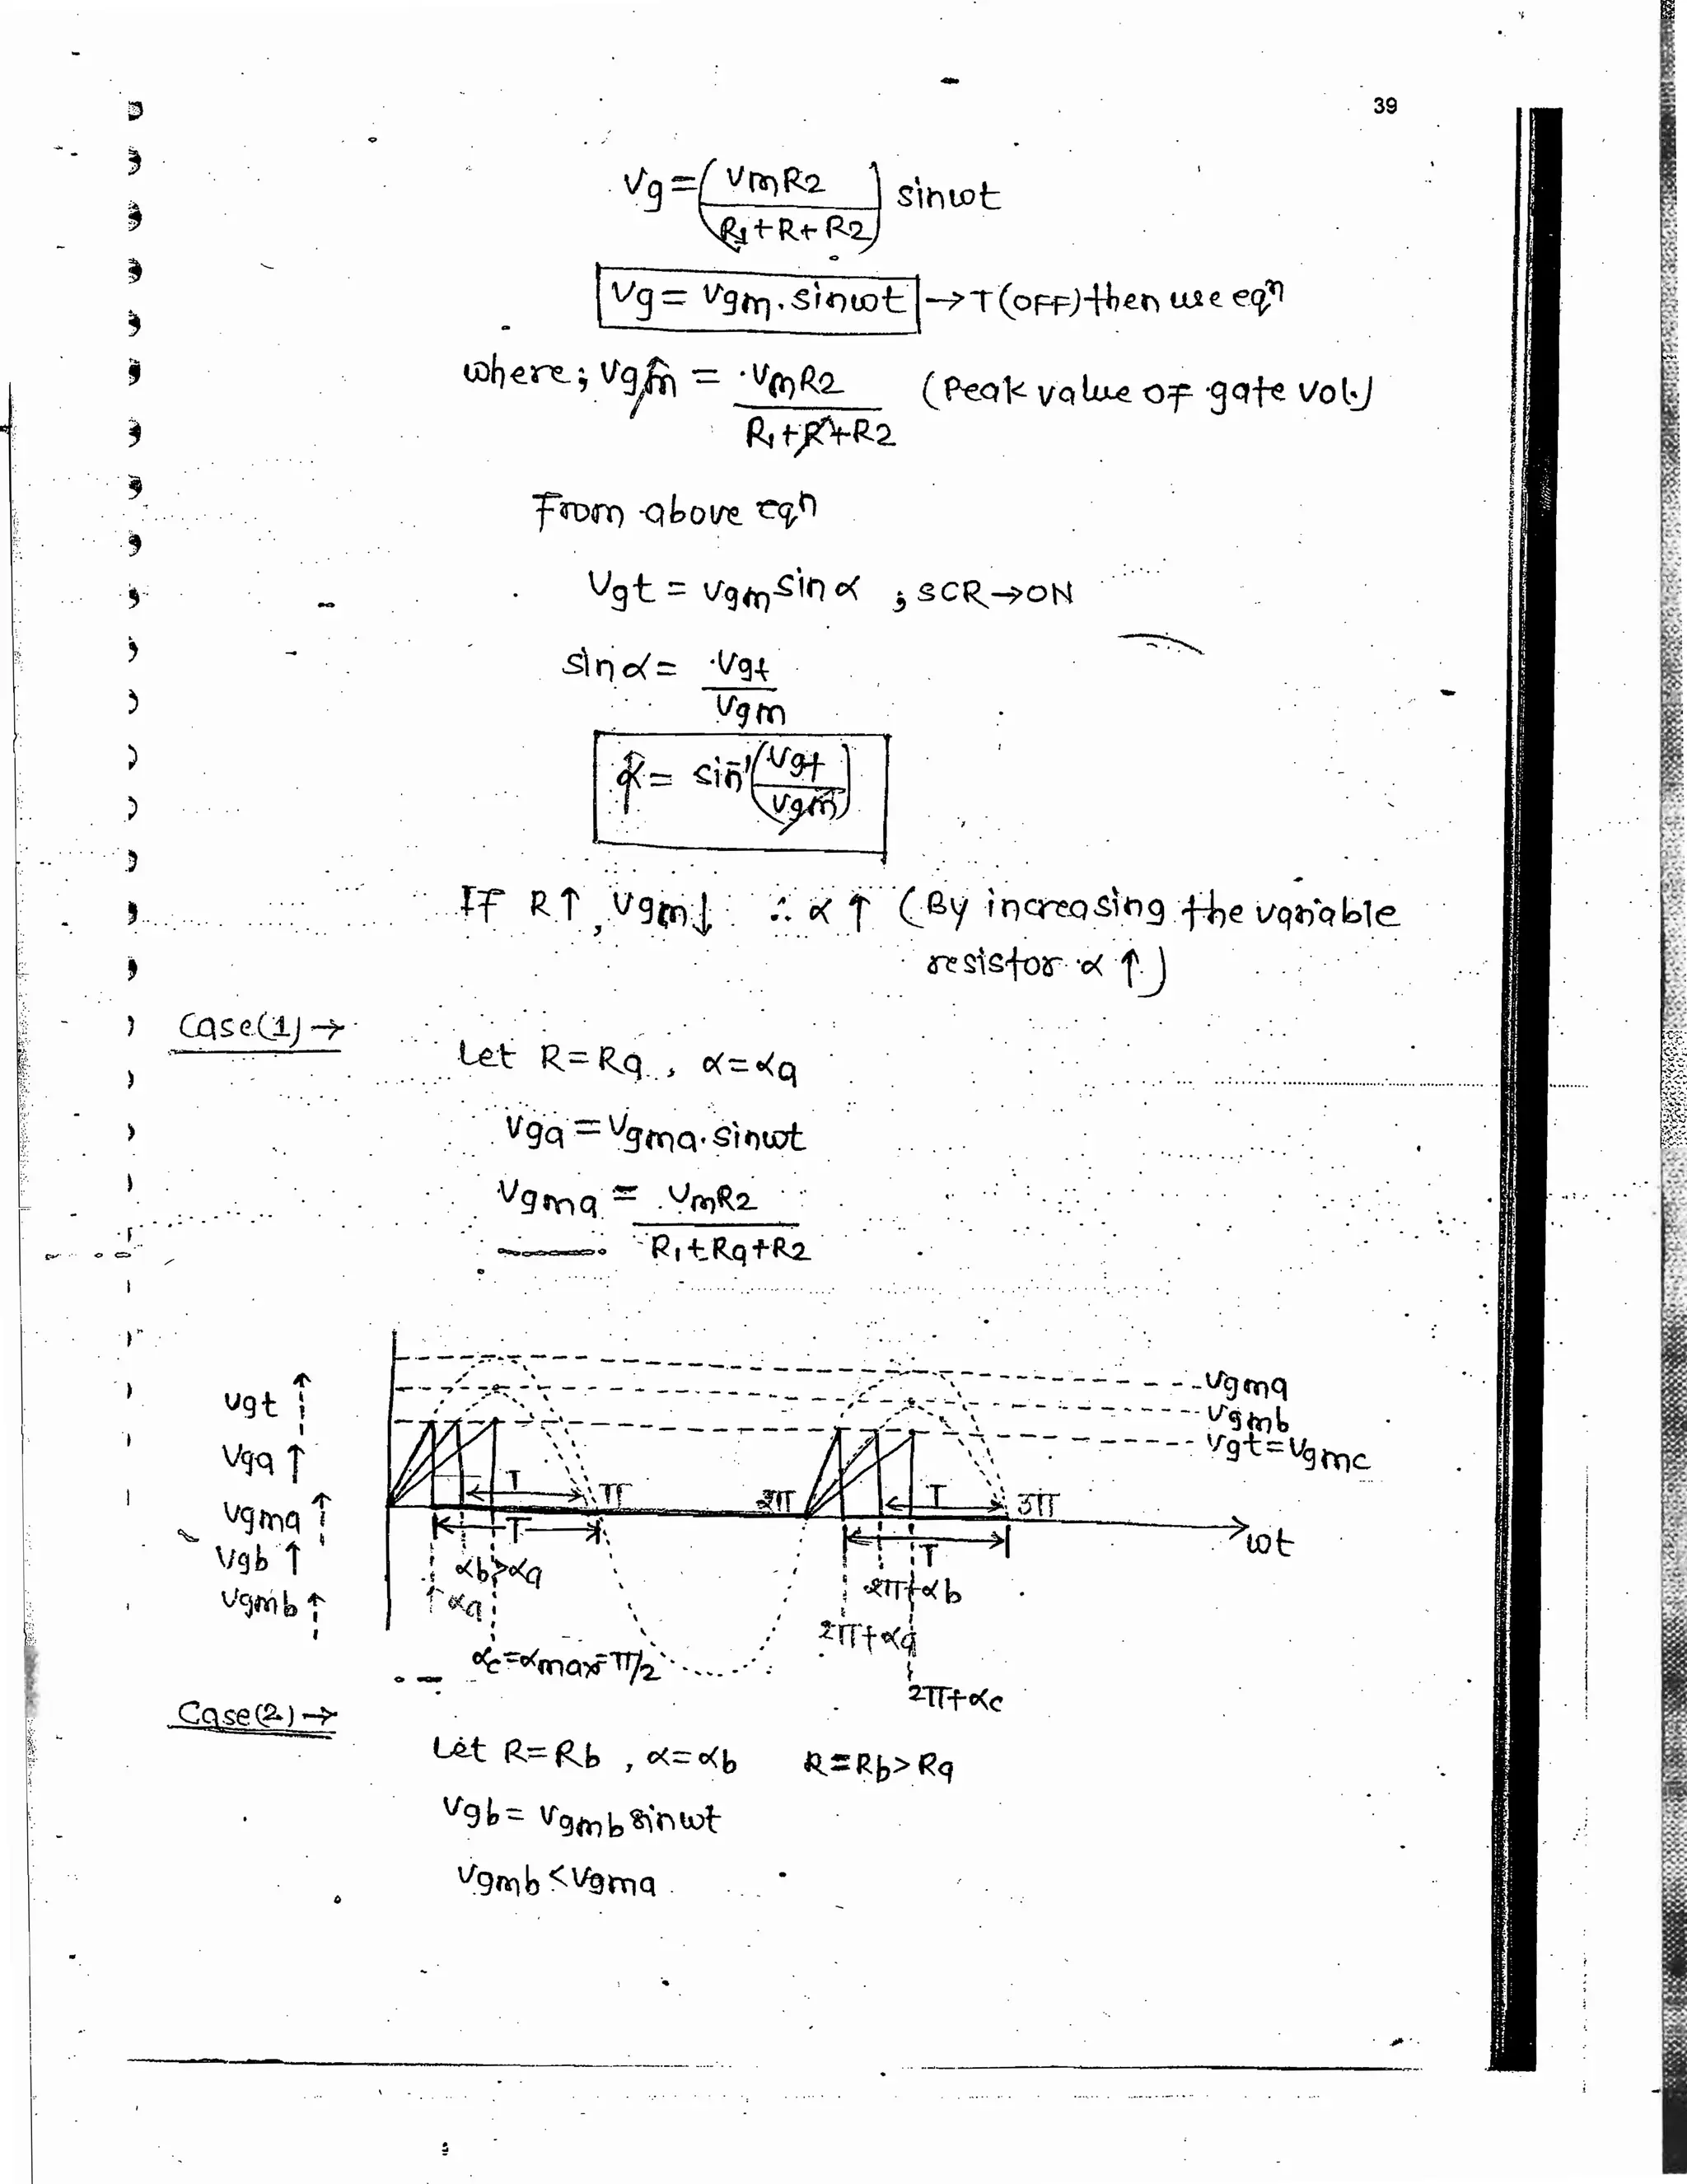 39
Vg = (VmR2 / R1+R+R2) sinωt
Vg = Vgm.sinωt → T(OFF) then use eqn
where; Vgm↑ = VmR2 / R1+R↑+R2 (Peak value of gate vol.)
From above eqn
Vgt = Vgm sin α ; SCR→ON
sin α = Vgt / Vgm
α = sin⁻¹(Vgt / Vgm)
If R↑, Vgm↓ ∴ α↑ (By increasing the variable
resistor α↑)
Case(1)→
Let R=Ra, α=αa
Vga = Vgma.sinωt
Vgma = VmR2 / R1+Ra+R2
Vgt
Vga
Vgma
Vgb
Vgmb
Vgma
Vgmb
Vgt=Vgmc
T π 2π T 3π
T T ωt
αb>αa 2π+αb
αa 2π+αa
αc=αmax=π/2 2π+αc
Case(2)→
Let R=Rb, α=αb R=Rb>Ra
Vgb = Vgmb sinωt
Vgmb<Vgma